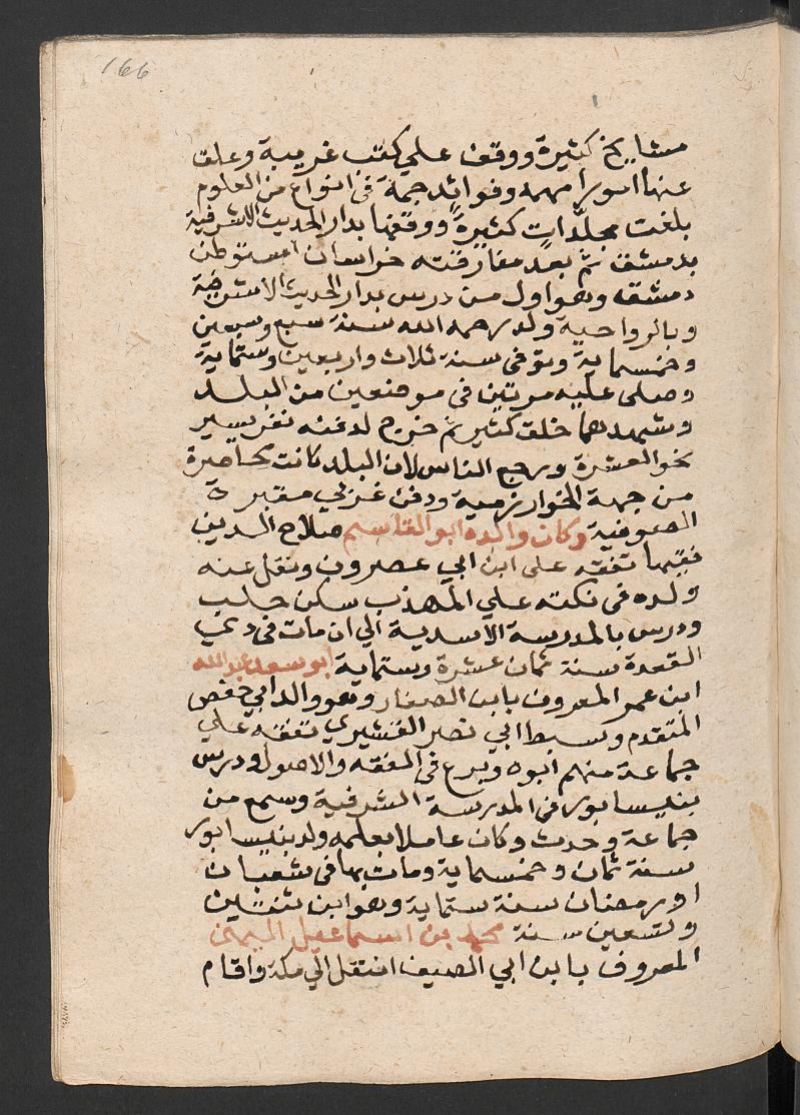 166
مشايخ كثيرة ووقف علي كتب غريبة وعلق
عنها امورا مهمه وفوائد جمة في انواع من العلوم
بلغت مجلدات كثيرة ووقفها بدار الحديث الاشرفية
بدمشق ثم بعد مفارقته خراسان استوطن
دمشق وهو اول من درس بدار الحديث الاشرفية
وبالرواحية ولد رحمه الله سنة سبع وسبعين
وخمسماية وتوفي سنة ثلاث واربعين وستماية
وصلى عليه مرتين في موضعين من البلد
وشهدهما خلق كثير ثم خرج لدفنه نفر يسير
نحو العشرة ورجع الناس لان البلد كانت محاصرة
من جهة الخوارزمية ودفن غربي مقبرة
الصوفية وكان والده ابو القاسم صلاح الدين
فقيها تفقه على ابن ابي عصرون ونقل عنه
ولده في نكته علي المهذب سكن حلب
ودرس بالمدرسة الاسدية الي ان مات في ذي
القعدة سنة ثمان عشرة وستماية ابو سعد عبد الله
ابن عمر المعروف بابن الصفار وهو والد ابي حفص
المتقدم وسبط ابي نصر القشيري تفقه علي
جماعة منهم ابوه وبرع في الفقه والاصول ودرس
بنيسابور في المدرسة الشرفية وسمع من
جماعة وحدث وكان عاملا بعلمه ولد بنيسابور
سنة ثمان وخمسماية ومات بها في شعبان
او رمضان سنة ستماية وهو ابن ثنتين
وتسعين سنة محمد بن اسماعيل اليمني
المعروف بابن ابي الصيف انتقل الي مكة واقام